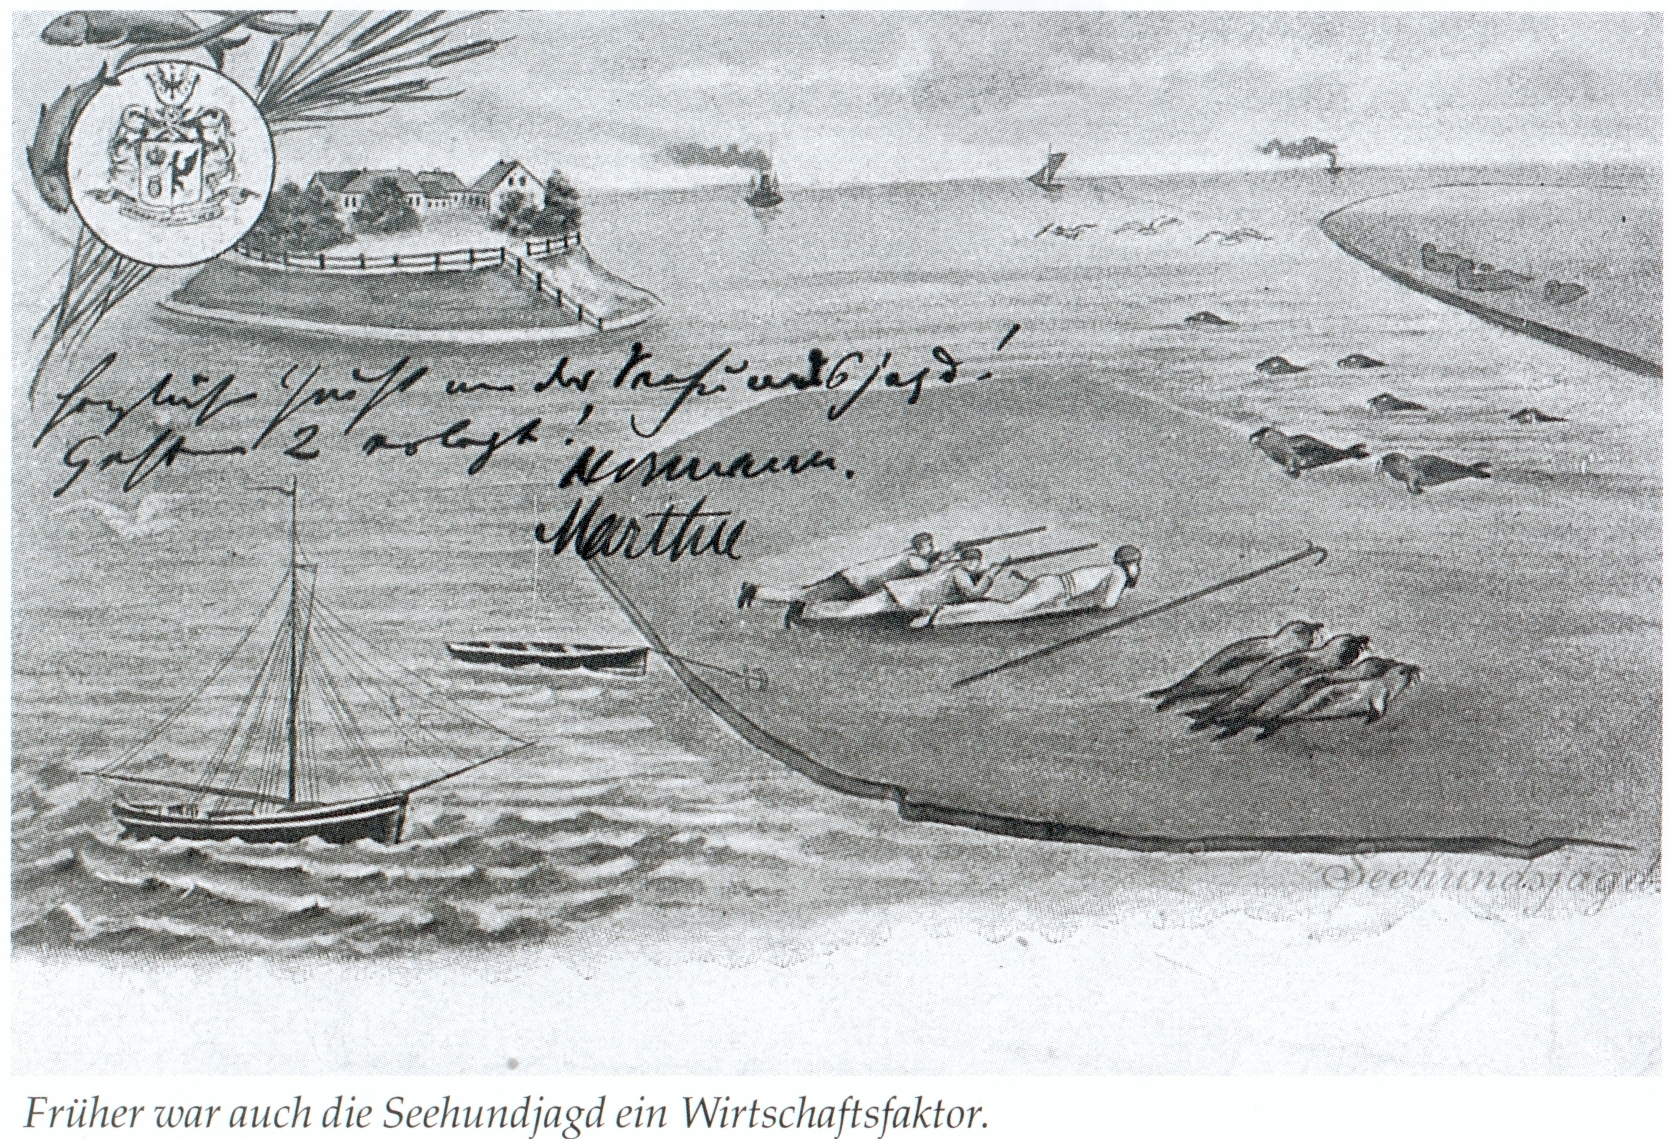 Herzlich Gruß von der Seehundsjagd!
Gestern 2 erlegt!
Hermann.
Marthe
Seehundsjagd.
Früher war auch die Seehundjagd ein Wirtschaftsfaktor.